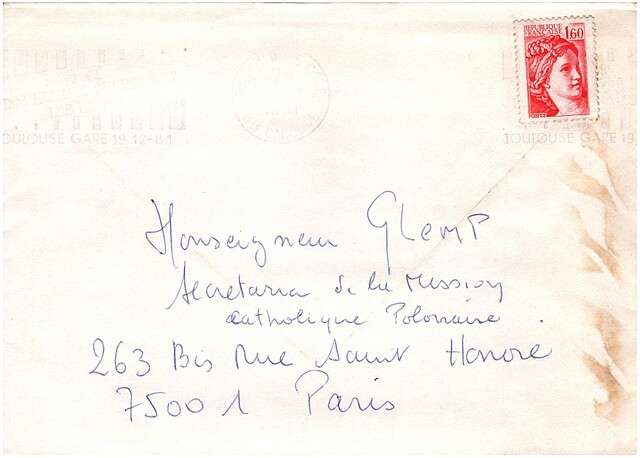 REPUBLIQUE
FRANÇAISE
1,60
POSTES
TOULOUSE GARE 19-12-81
TOULOUSE GARE 19
Monseigneur GLEMP
Secretaria de la Mission
Catholique Polonaise
263 Bis Rue Saint Honoré
75001 Paris